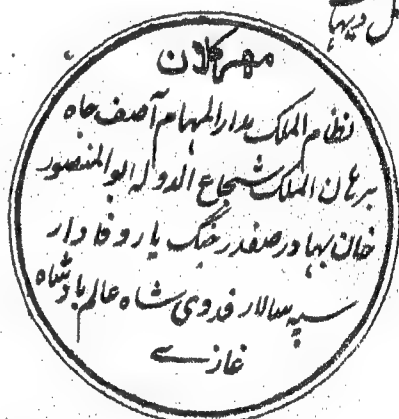 مہر کلان
نظام الملک مدار المہام آصف جاہ
برہان الملک شجاع الدولہ ابو المنصور
خان بہادر صفدر جنگ یار وفادار
سپہ سالار فدوی شاہ عالم بادشاہ
غازے